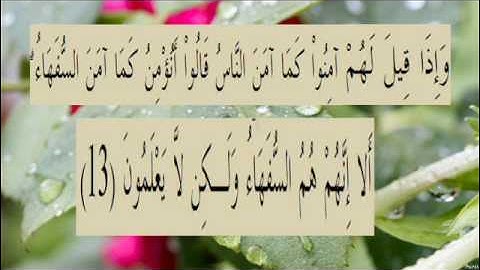 وَإِذَا قِيلَ لَهُمْ آمِنُواْ كَمَا آمَنَ النَّاسُ قَالُواْ أَنُؤْمِنُ كَمَا آمَنَ السُّفَهَاءُ ۗ
أَلا إِنَّهُمْ هُمُ السُّفَهَاءُ وَلَـكِن لاَّ يَعْلَمُونَ (13)